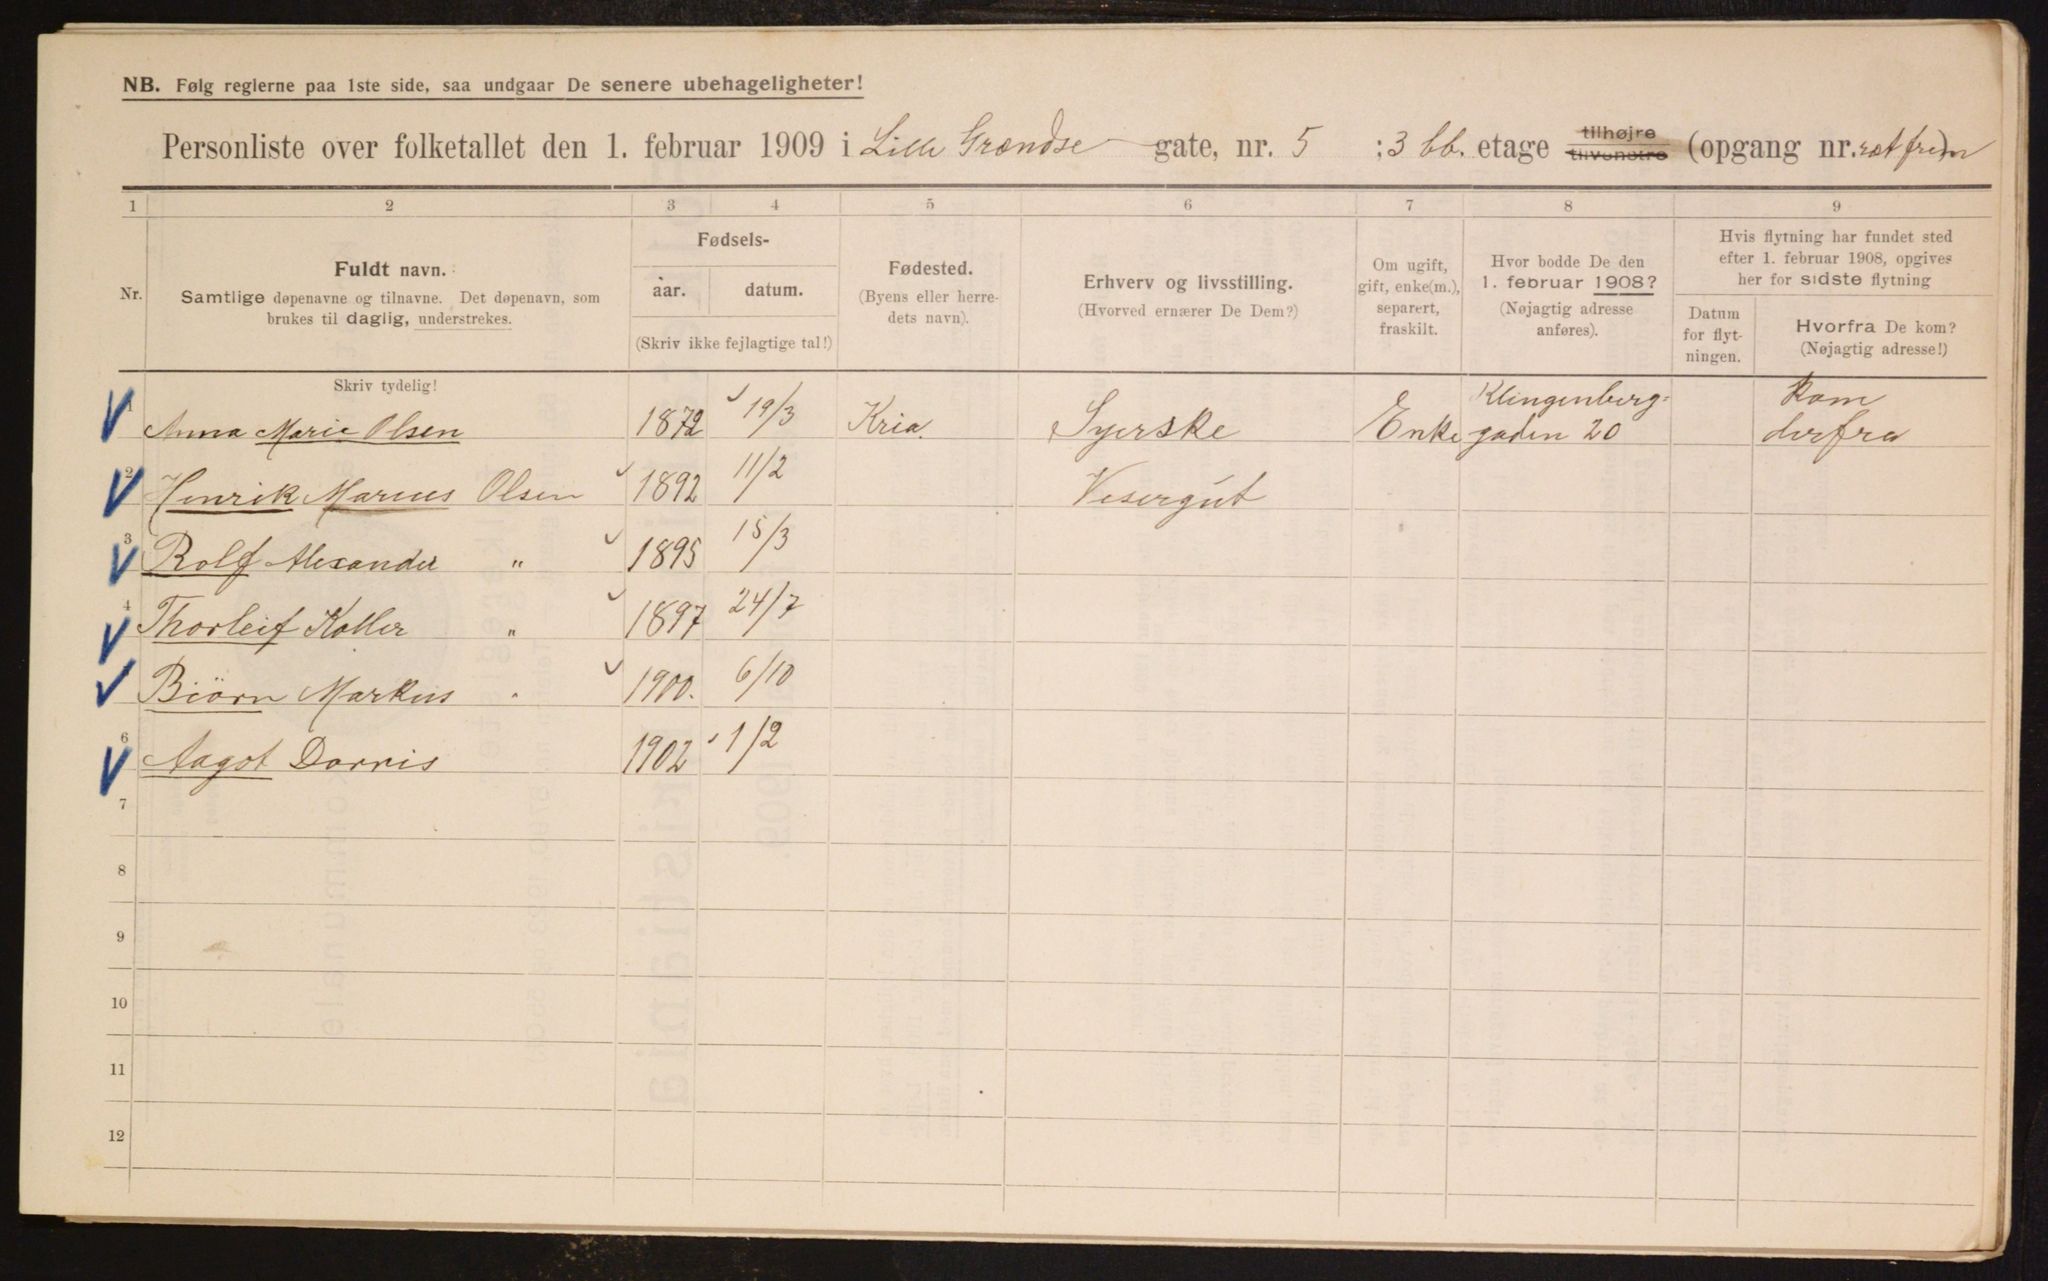 NB. Følg reglerne paa 1ste side, saa undgaar De senere ubehageligheter!
Personliste over folketallet den 1. februar 1909 i Lille Grændse gate, nr. 5 ; 3 bb. etage tilhøjre tilvenstre (opgang nr. ret frem)
1 2 3 4 5 6 7 8 9
Nr.
Fuldt navn.
Samtlige døpenavne og tilnavne. Det døpenavn, som
brukes til daglig, understrekes.
Fødsels-
aar. datum.
(Skriv ikke fejlagtige tal!)
Fødested.
(Byens eller herre-
dets navn).
Erhverv og livsstilling.
(Hvorved ernærer De Dem?)
Om ugift,
gift, enke(m.),
separert,
fraskilt.
Hvor bodde De den
1. februar 1908?
(Nøjagtig adresse
anføres).
Hvis flytning har fundet sted
efter 1. februar 1908, opgives
her for sidste flytning
Datum
for flyt-
ningen.
Hvorfra De kom?
(Nøjagtig adresse!)
Skriv tydelig!
1 Anna Marie Olsen 1872 19/3 Kria. Syerske Enke Klingenberg=
gaden 20 Kom
derfra
2 Henrik Marius Olsen 1892 11/2 Visergut
3 Rolf Alexander " 1895 15/3
4 Thorleif Koller " 1897 24/7
Biörn Markus " 1900. 6/10
6 Aagot Dorris 1902 1/2
7
8
9
10
11
12